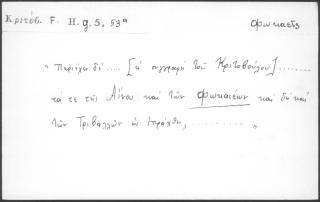 Κριτόβ. F. H. g. 5, 53ᵃ
φωκαεῖς
" Περιέχει δὲ ..... [ἡ συγγραφὴ τοῦ Κριτοβούλου] ........
τά τε τῆς Αἴνου καὶ τῶν φωκαιέων καὶ δὴ καὶ
τῶν Τριβαλλῶν ὡς ἐπράχθη, ........ „